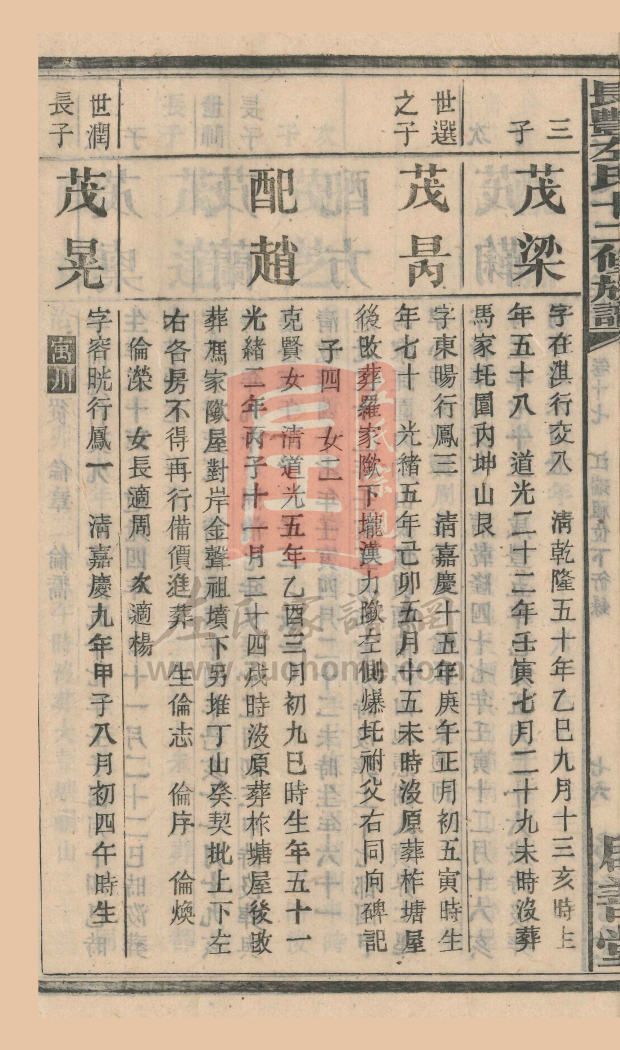 長豐左氏十二修族譜
卷十七 江瑞祖位下衍錄
七六
三子
茂梁
字在淇行交八 清乾隆五十年乙巳九月十三亥時生
年五十八 道光二十二年壬寅七月二十九未時沒葬
馬家圫園內坤山艮
世選之子
茂昺
字東暘行鳳三 清嘉慶十五年庚午正月初五寅時生
年七十 光緒五年己卯五月十五未時沒原葬柞塘屋
後改葬羅家 下壠漢力 左側爆圫祔父右同向碑記
子四 女二
配趙
克賢女 清道光五年乙酉三月初九巳時生年五十一
光緒二年丙子十一月二十四戌時沒原葬柞塘屋後改
葬馮家 屋對岸金聲祖墳下另堆丁山癸契批上下左
右各房不得再行備價進葬 生倫志 倫序 倫煥
倫濚 女長適周 次適楊
世潤長子
茂晃
字容晄行鳳一 清嘉慶九年甲子八月初四午時生
寓川
左氏家譜網
www.zuohome.com